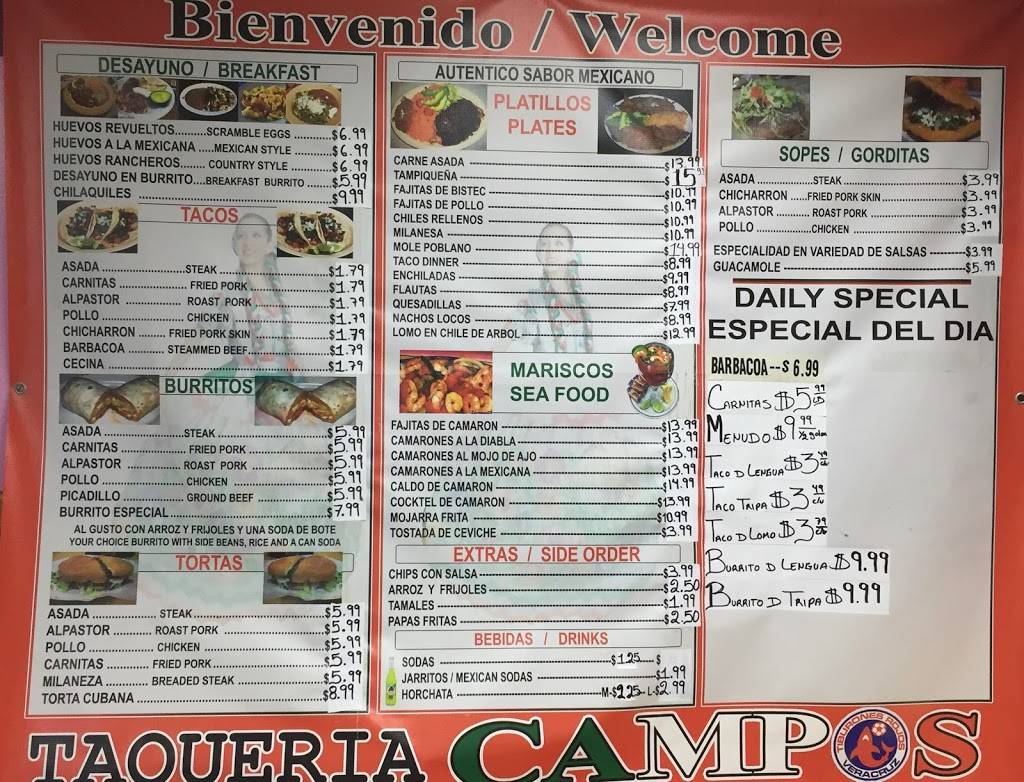 Bienvenido / Welcome
DESAYUNO / BREAKFAST
HUEVOS REVUELTOS.........SCRAMBLE EGGS .........$6.99
HUEVOS A LA MEXICANA .....MEXICAN STYLE .........$6.99
HUEVOS RANCHEROS....... COUNTRY STYLE .........$6.99
DESAYUNO EN BURRITO....BREAKFAST BURRITO .......$5.99
CHILAQUILES ..........$9.99
TACOS
ASADA ..........STEAK ..........$1.79
CARNITAS .......... FRIED PORK ..........$1.79
ALPASTOR .......... ROAST PORK ..........$1.79
POLLO .......... CHICKEN ..........$1.79
CHICHARRON ......... FRIED PORK SKIN .........$1.79
BARBACOA ......... STEAMMED BEEF .........$1.79
CECINA ..........$1.79
BURRITOS
ASADA ..........STEAK ..........$5.99
CARNITAS .......... FRIED PORK ..........$5.99
ALPASTOR .......... ROAST PORK ..........$5.99
POLLO .......... CHICKEN ..........$5.99
PICADILLO .......... GROUND BEEF ..........$5.99
BURRITO ESPECIAL ..........$7.99
AL GUSTO CON ARROZ Y FRIJOLES Y UNA SODA DE BOTE
YOUR CHOICE BURRITO WITH SIDE BEANS, RICE AND A CAN SODA
TORTAS
ASADA .......... STEAK ..........$5.99
ALPASTOR .......... ROAST PORK ..........$5.99
POLLO .......... CHICKEN ..........$5.99
CARNITAS .......... FRIED PORK ..........$5.99
MILANEZA .......... BREADED STEAK ..........$5.99
TORTA CUBANA ..........$8.99
AUTENTICO SABOR MEXICANO
PLATILLOS
PLATES
CARNE ASADA ----------$13.99
TAMPIQUEÑA ----------$15.99
FAJITAS DE BISTEC ----------$10.99
FAJITAS DE POLLO ----------$10.99
CHILES RELLENOS ----------$10.99
MILANESA ----------$10.99
MOLE POBLANO ----------$14.99
TACO DINNER ----------$8.99
ENCHILADAS ----------$9.99
FLAUTAS ----------$8.99
QUESADILLAS ----------$7.99
NACHOS LOCOS ----------$8.99
LOMO EN CHILE DE ARBOL ----------$12.99
MARISCOS
SEA FOOD
FAJITAS DE CAMARON ----------$13.99
CAMARONES A LA DIABLA ----------$13.99
CAMARONES AL MOJO DE AJO ----------$13.99
CAMARONES A LA MEXICANA ----------$13.99
CALDO DE CAMARON ----------$14.99
COCKTEL DE CAMARON ----------$13.99
MOJARRA FRITA ----------$10.99
TOSTADA DE CEVICHE ----------$3.99
EXTRAS / SIDE ORDER
CHIPS CON SALSA ----------$3.99
ARROZ Y FRIJOLES ----------$2.50
TAMALES ----------$1.99
PAPAS FRITAS ----------$2.50
BEBIDAS / DRINKS
SODAS ----------$1.25 ----- $
JARRITOS / MEXICAN SODAS ----------$1.99
HORCHATA ----------M-$2.25-- L-$2.99
SOPES / GORDITAS
ASADA .......... STEAK ..........$3.99
CHICHARRON .....FRIED PORK SKIN ..........$3.99
ALPASTOR .......... ROAST PORK ..........$3.99
POLLO .......... CHICKEN ..........$3.99
ESPECIALIDAD EN VARIEDAD DE SALSAS -------$3.99
GUACAMOLE ----------$5.99
DAILY SPECIAL
ESPECIAL DEL DIA
BARBACOA--$ 6.99
CARNITAS $5.99 LB
MENUDO $9.99 1/2 galon
TACO D LENGUA $3.49 c/u
TACO TRIPA $3.49 c/u
TACO D LOMO $3.79 c/u
BURRITO D LENGUA $9.99
BURRITO D TRIPA $9.99
TAQUERIA CAMPOS
TIBURONES ROJOS
VERACRUZ